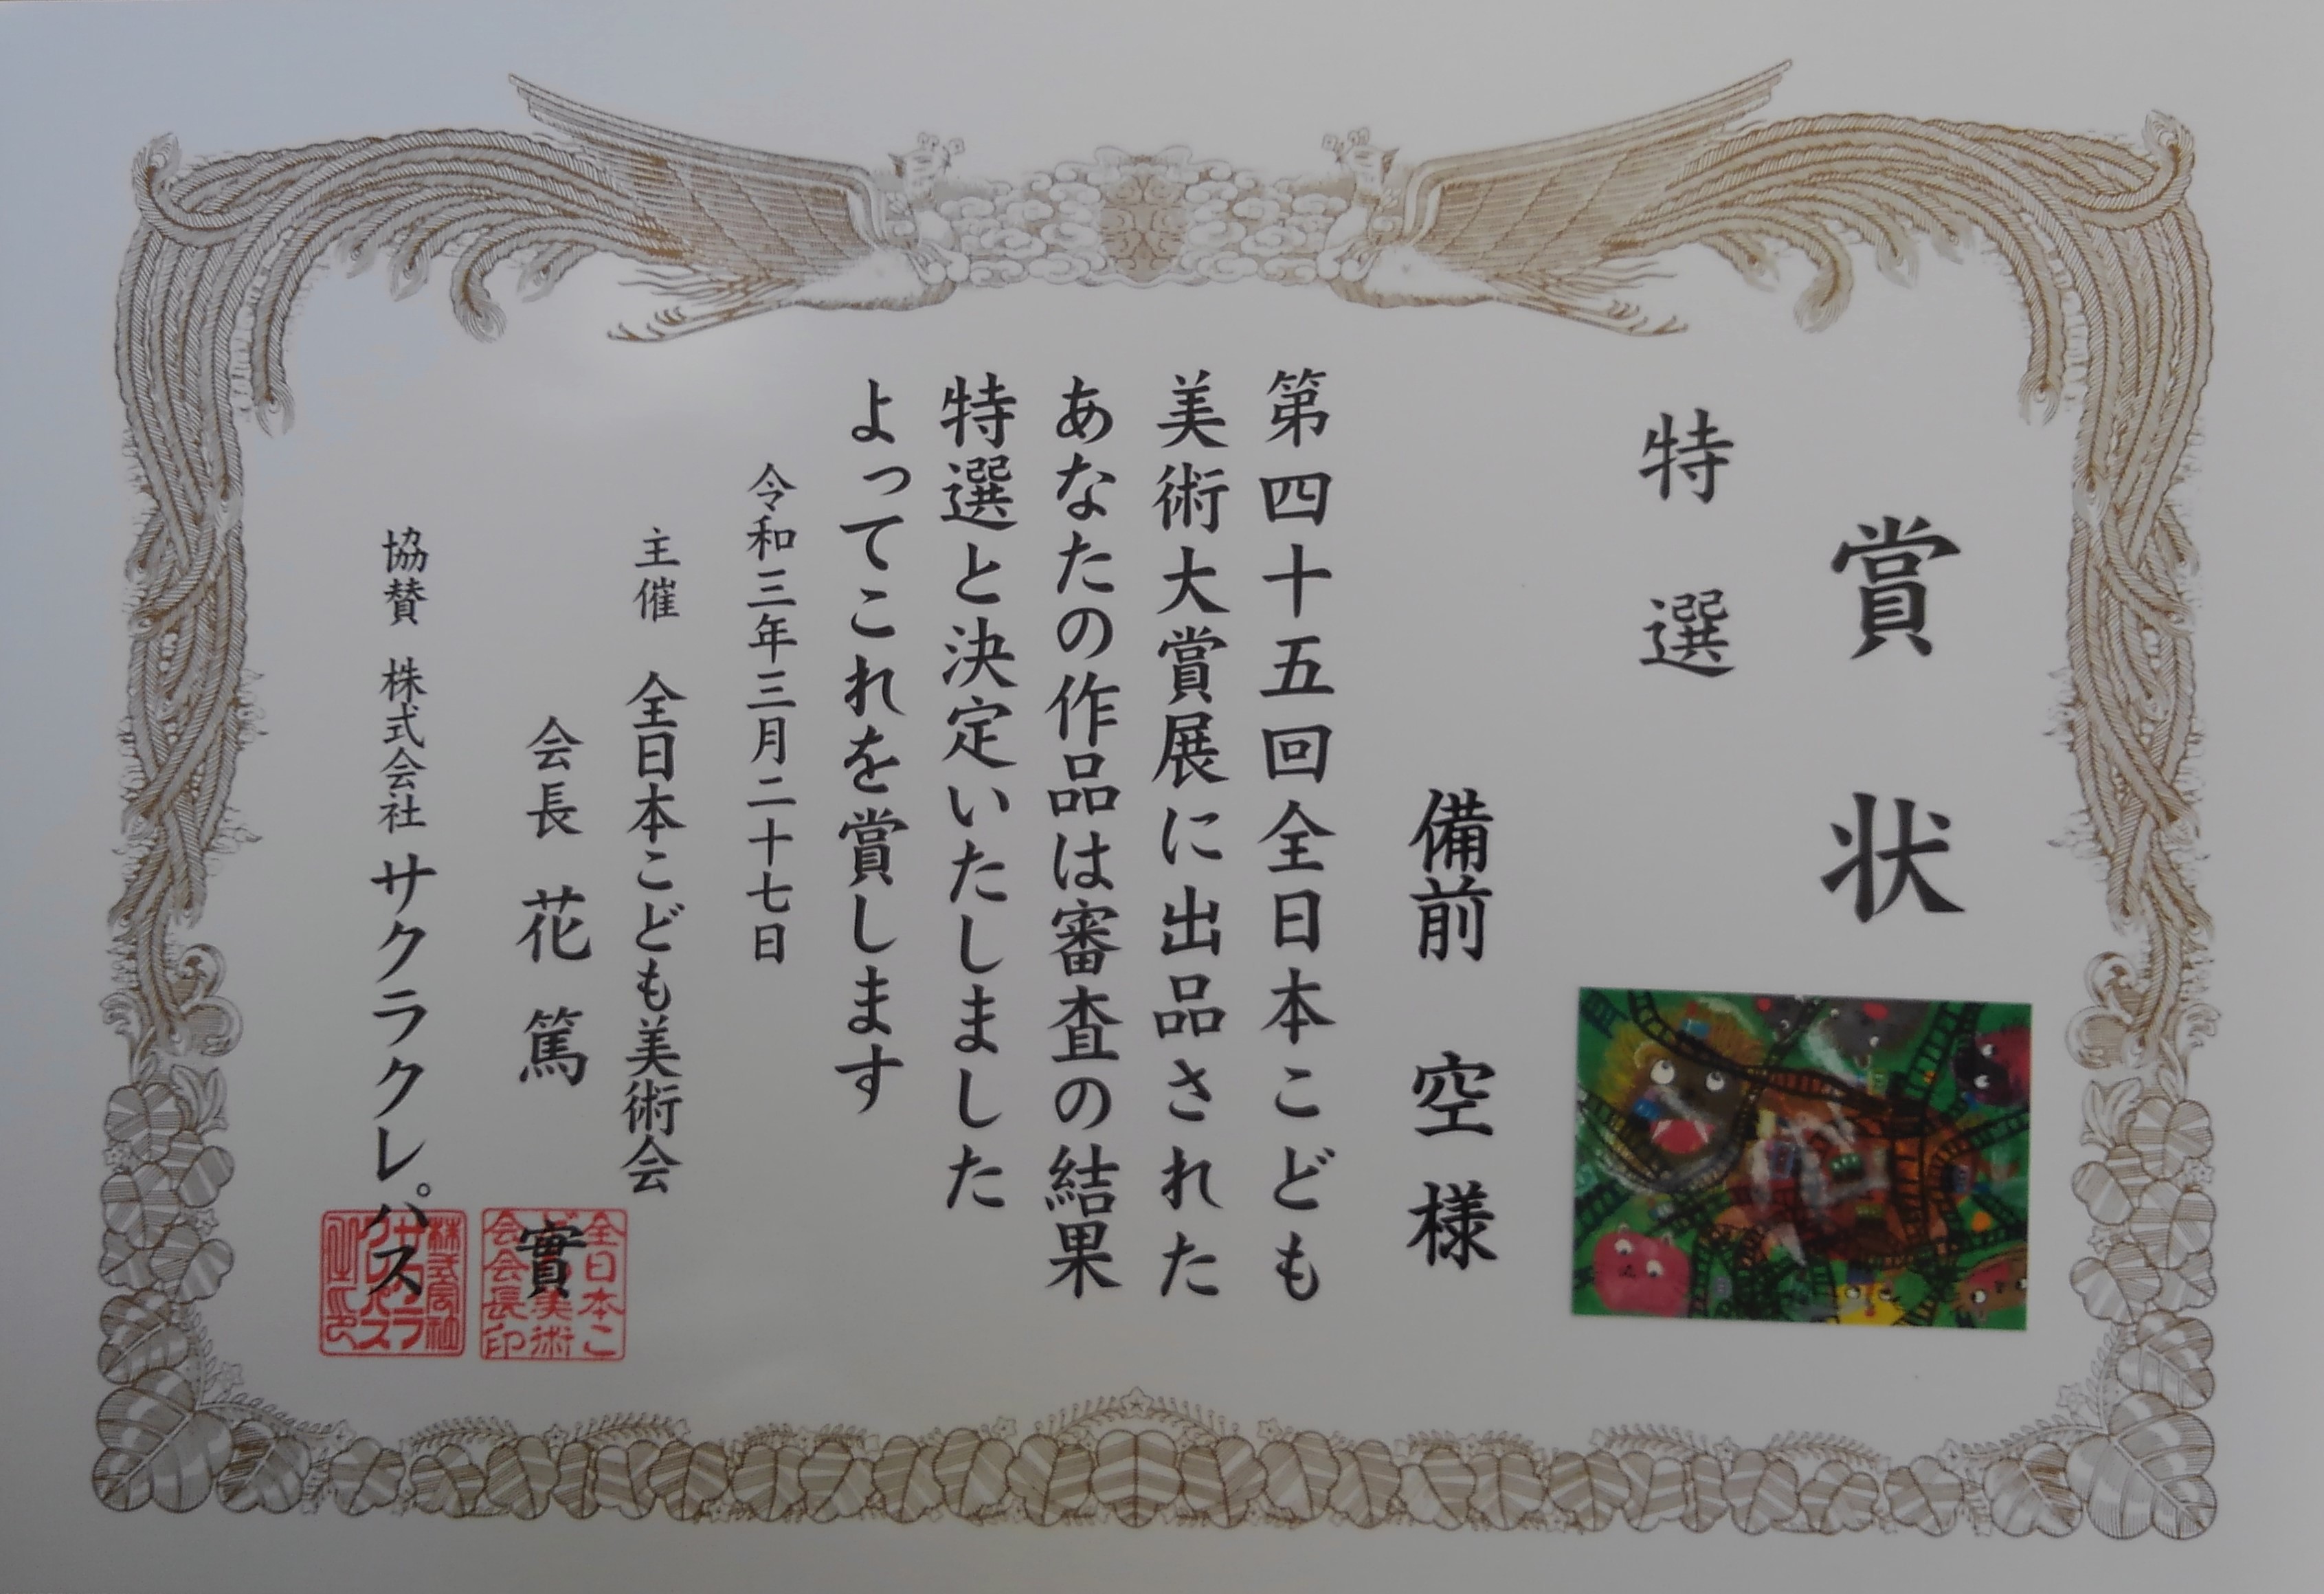 賞状
特選
備前 空 様
第四十五回全日本こども
美術大賞展に出品された
あなたの作品は審査の結果
特選と決定いたしました
よってこれを賞します
令和三年三月二十七日
主催 全日本こども美術会
会長 花篤實
協賛 株式会社サクラクレパス
全日本こども美術会会長印
株式会社サクラクレパス之印